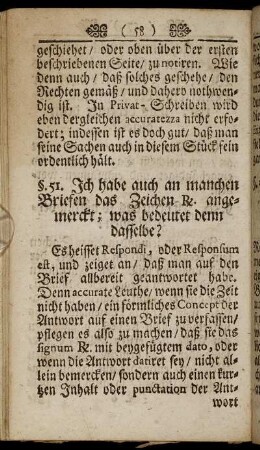 ( 58 )
geschiehet/ oder oben über der ersten
beschriebenen Seite/ zu notiren. Wie
denn auch/ daß solches geschehe/ den
Rechten gemäß/ und dahero nothwen-
dig ist. In Privat-Schreiben wird
eben dergleichen accuratezza nicht erfo-
dert; indessen ist es doch gut/ daß man
seine Sachen auch in diesem Stück fein
ordentlich hält.
§. 51. Ich habe auch an manchen
Briefen das Zeichen R. ange-
merckt; was bedeutet denn
dasselbe?
Es heisset Respondi, oder Responsum
est, und zeiget an/ daß man auf den
Brief allbereit geantwortet habe.
Denn accurate Leuthe/ wenn sie die Zeit
nicht haben/ ein förmliches Concept der
Antwort auf einen Brief zu verfassen/
pflegen es also zu machen/ daß sie das
signum R. mit beygefügtem dato, oder
wenn die Antwort datiret sey/ nicht al-
lein bemercken/ sondern auch einen kur-
tzen Inhalt oder punctation der Ant-
wort